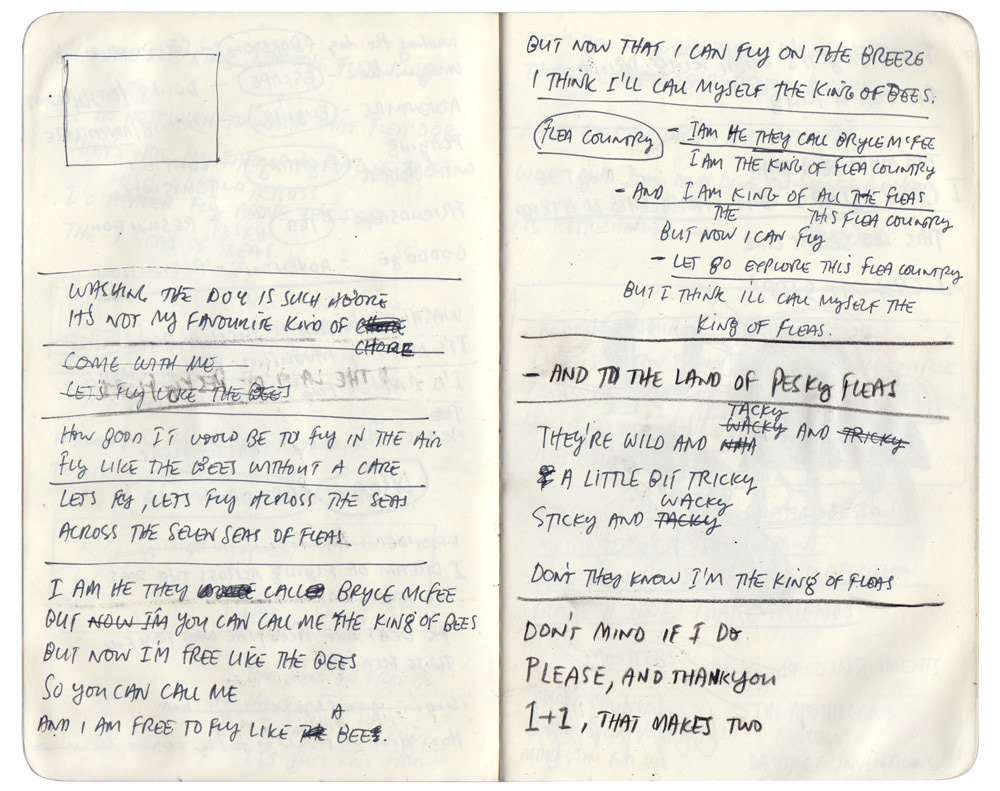 WASHING THE DOG IS SUCH A BORE
IT'S NOT MY FAVOURITE KIND OF CHORE
CHORE
COME WITH ME
LETS FLY LIKE THE BEES
HOW GOOD IT WOULD BE TO FLY IN THE AIR
FLY LIKE THE BEES WITHOUT A CARE.
LETS FLY, LETS FLY ACROSS THE SEAS
ACROSS THE SEVEN SEAS OF FLEAS
I AM HE THEY CALL BRYCE MCFEE
BUT NOW I'M YOU CAN CALL ME THE KING OF BEES
BUT NOW I'M FREE LIKE THE BEES
SO YOU CAN CALL ME
A
AND I AM FREE TO FLY LIKE THE BEE.
BUT NOW THAT I CAN FLY ON THE BREEZE
I THINK I'LL CALL MYSELF THE KING OF BEES.
FLEA COUNTRY - I AM HE THEY CALL BRYCE MCFEE
I AM THE KING OF FLEA COUNTRY
- AND I AM KING OF ALL THE FLEAS
THE THIS FLEA COUNTRY
BUT NOW I CAN FLY
- LET GO EXPLORE THIS FLEA COUNTRY
BUT I THINK I'LL CALL MYSELF THE
KING OF FLEAS.
- AND TO THE LAND OF PESKY FLEAS
TACKY
WACKY
THEY'RE WILD AND AND TRICKY
A LITTLE BIT TRICKY
WACKY
STICKY AND TACKY
DON'T THEY KNOW I'M THE KING OF FLEAS
DON'T MIND IF I DO.
PLEASE, AND THANKYOU
1+1, THAT MAKES TWO